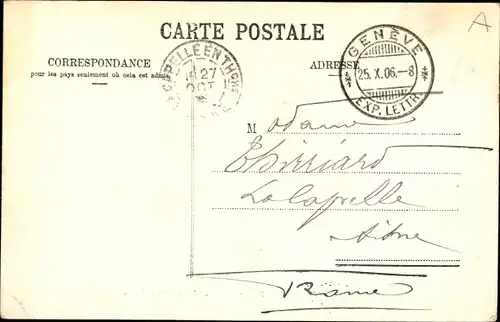 CARTE POSTALE
CORRESPONDANCE
pour les pays seulement où cela est admis
ADRESSE
GENÈVE
25. X. 06.–8
EXP. LETTR.
CAPELLE EN THCHE
27
OCT
Madame
Lacapelle
Aisne
France
A